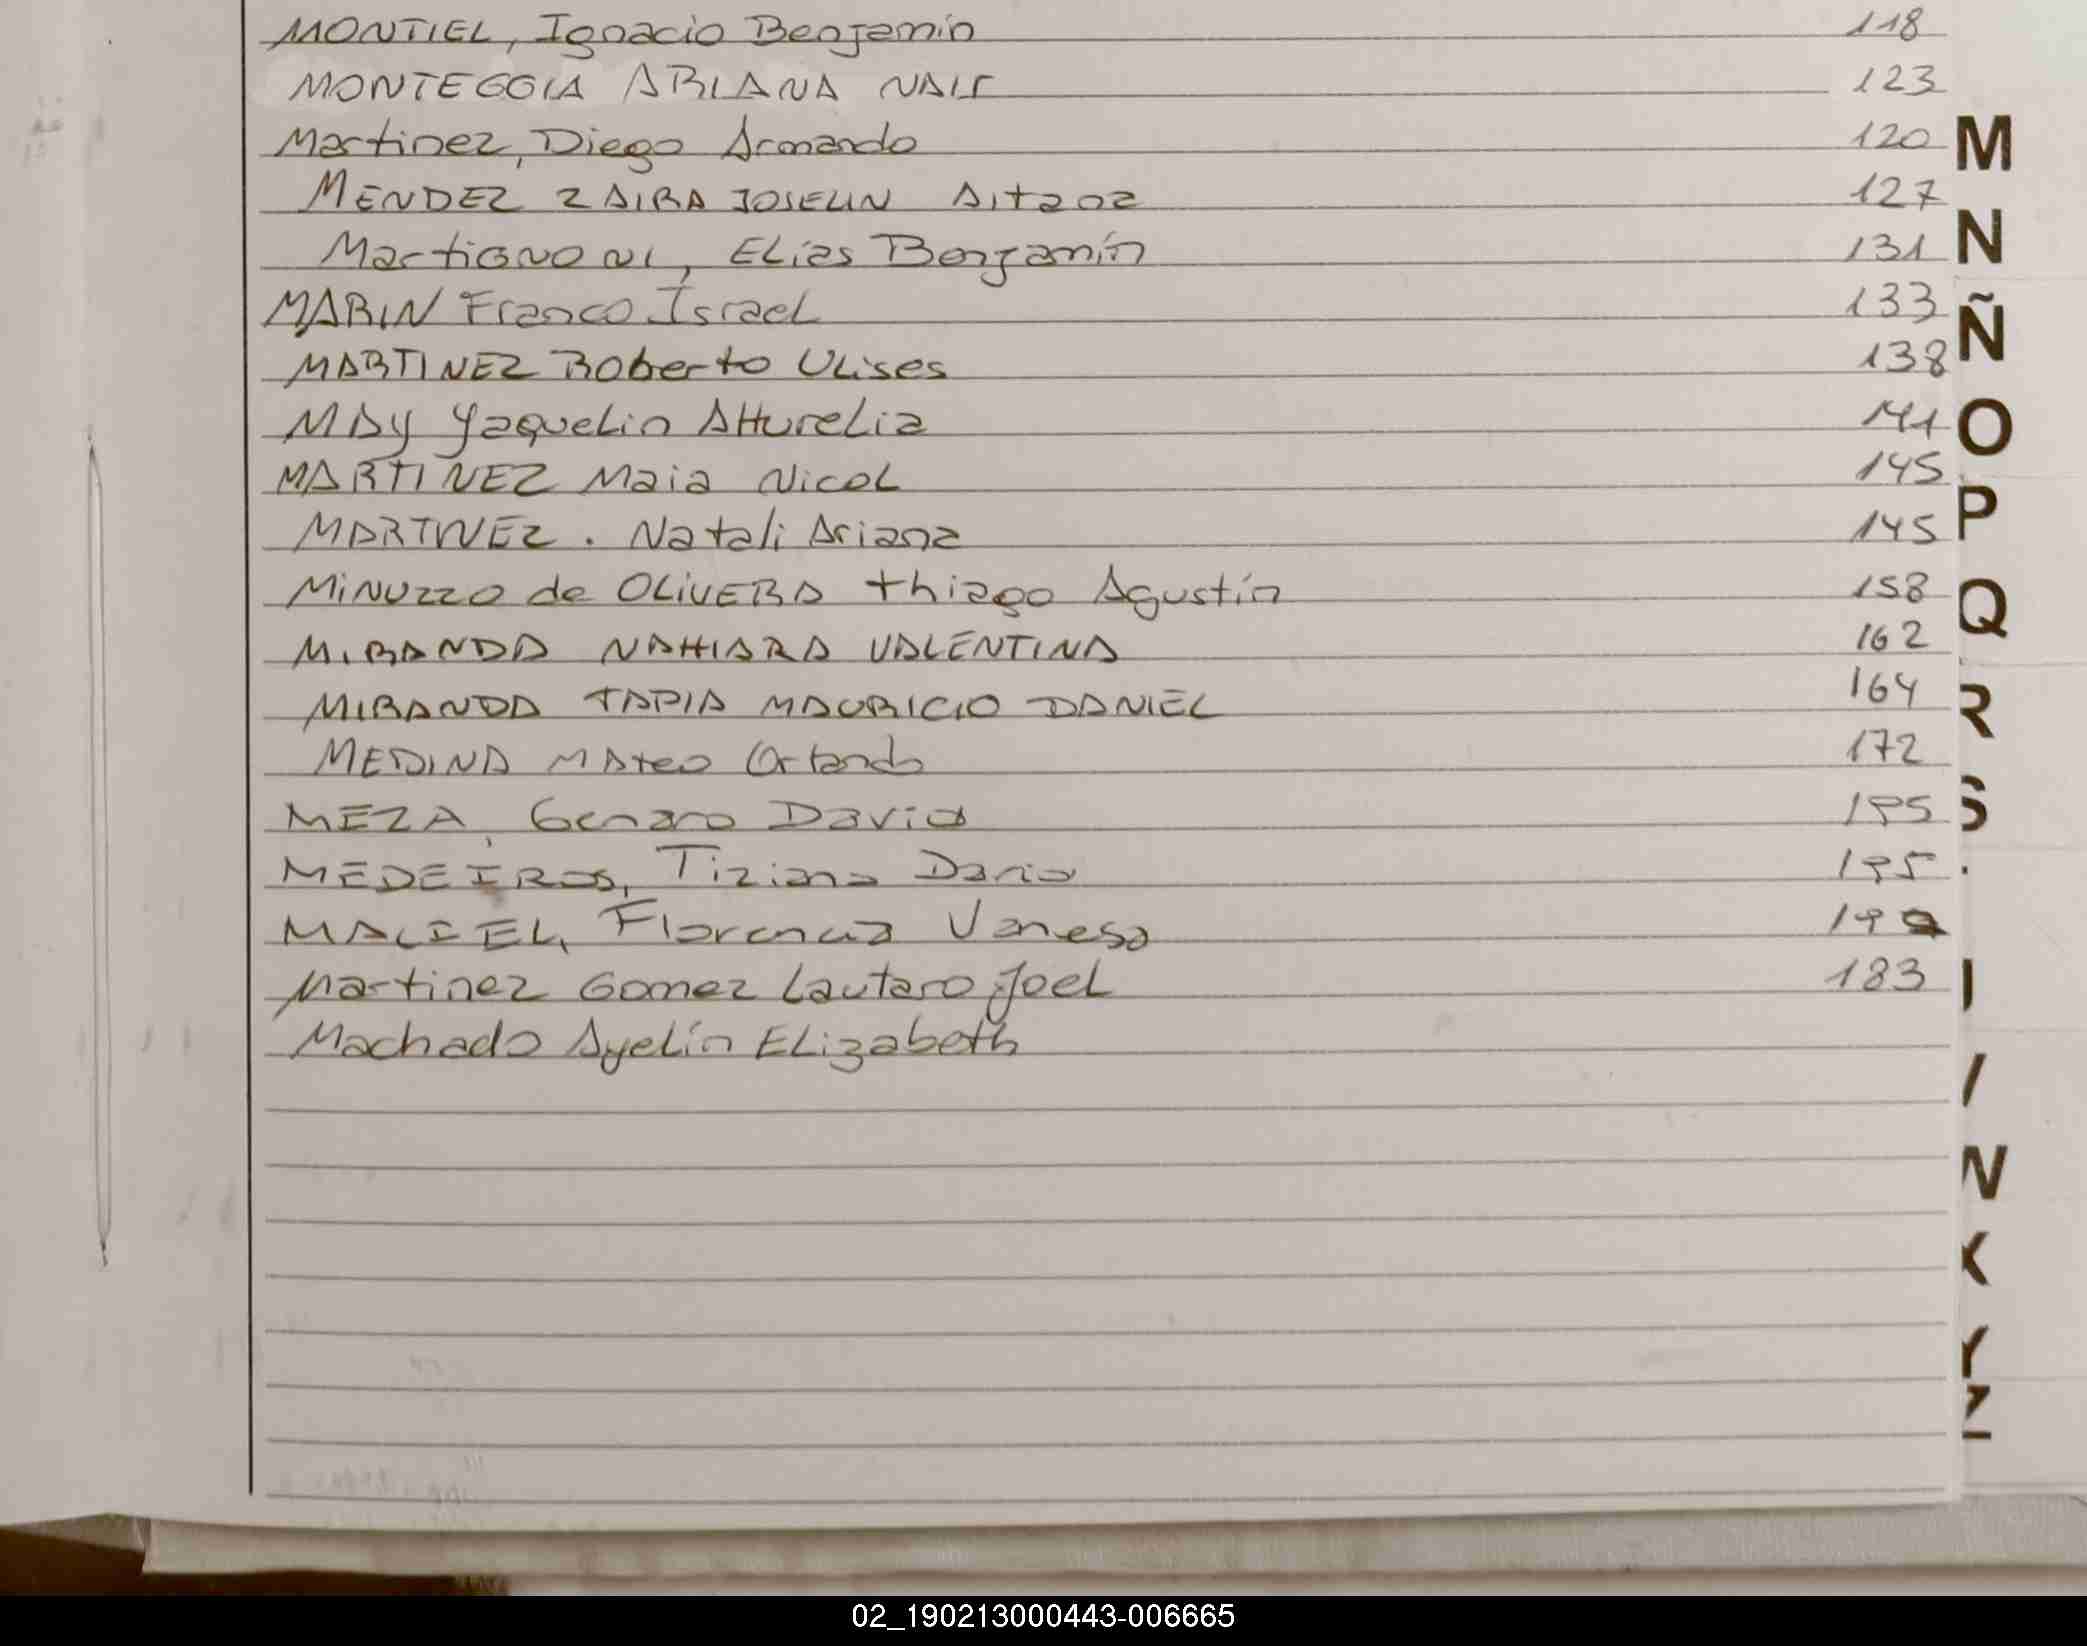 MONTIEL, Ignacio Benjamín 118
MONTEGGIA ARIANA NAIR 123
Martinez, Diego Armando 120
MENDEZ ZAIRA JOSELIN Aitana 127
Martignoni, Elías Benjamín 131
MARIN Franco Israel 133
MARTINEZ Roberto Ulises 138
MAY Yaquelin 141
MARTINEZ Maia Nicol 145
MARTINEZ. Natali Ariana 145
MINUZZO de OLIVERA thiago Agustín 158
MIRANDA NAHIARA VALENTINA 162
MIRANDA TAPIA MAURICIO DANIEL 164
MEDINA MAteo Orlando 172
MEZA, Genaro David
MEDEIROS, Dario
MACIEL, Florencia Vanesa
Martinez Gomez Lautaro Joel 183
Machado Ayelín Elizabeth
M
N
Ñ
O
P
Q
R
S
X
Y
Z
02_190213000443-006665